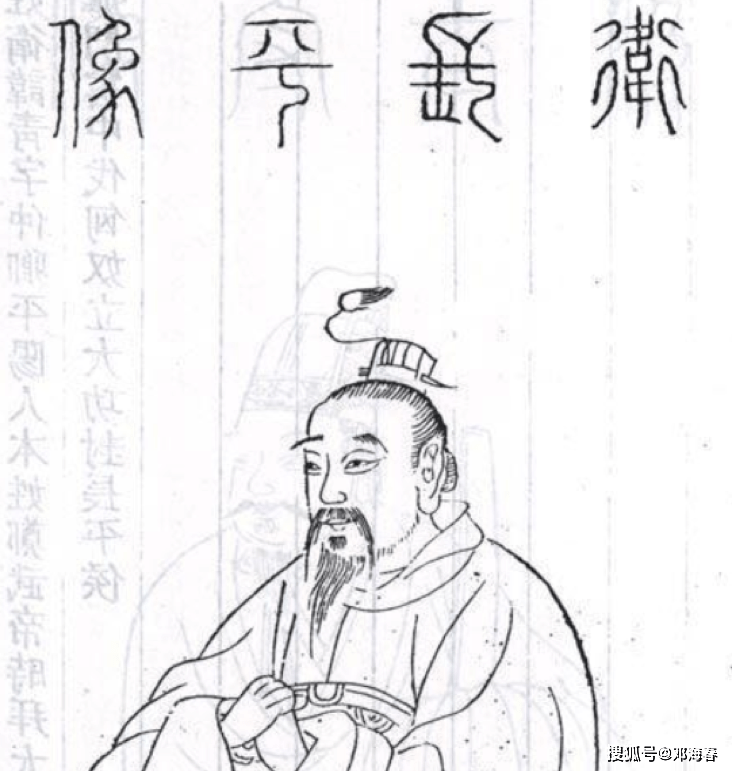 衛長平像
姓衛諱青字仲卿平陽人本姓鄭武帝時拜大
伐匈奴立大功封長平侯
搜狐号@邓海春